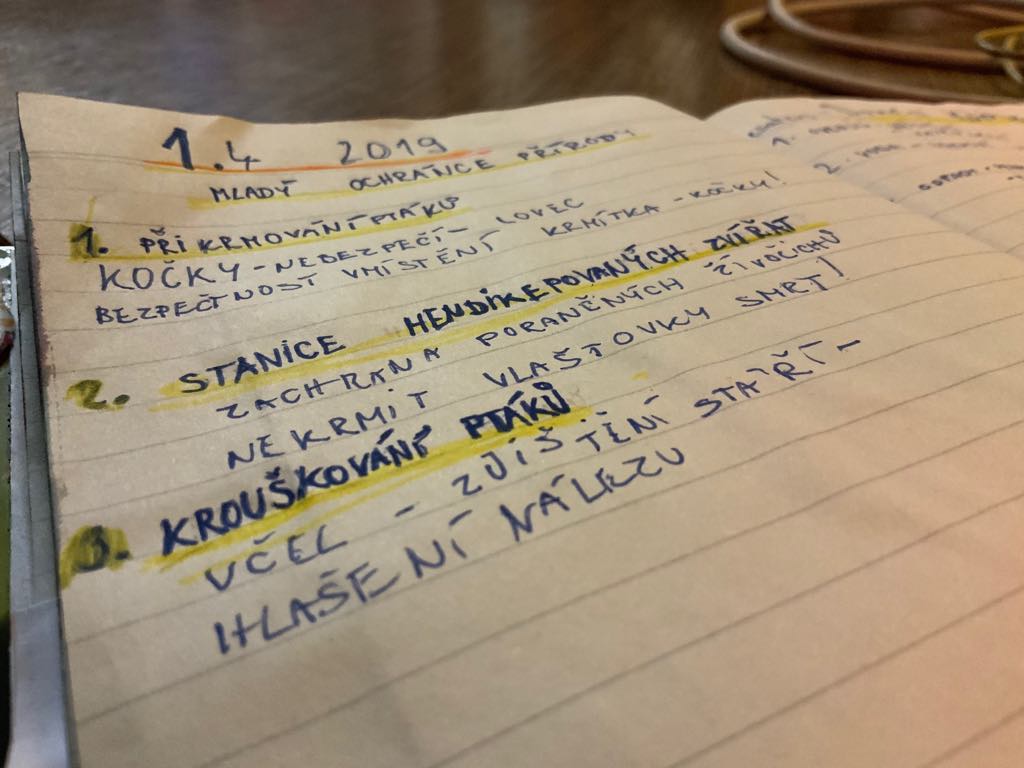 1.4 2019
MLADÝ OCHRÁNCE PŘÍRODY
1. PŘI KRMOVÁNÍ PTÁKŮ
KOČKY - NEBEZPEČÍ - LOVEC
BEZPEČTNOST VMÍSTĚNÍ KRMÍTKA - KOČKY!
2. STANICE HENDIKEPOVANÝCH ZVÍŘAT
ZACHRANA PORANĚNÝCH ŽIVOČICHŮ
NEKRMIT VLAŠŤOVKY SMRT!
3. KROUŠKOVÁNÍ PTÁKŮ
UČEL - ZJIŠTĚNÍ STÁŘÍ -
HLAŠENÍ NÁLEZU
1.
2.